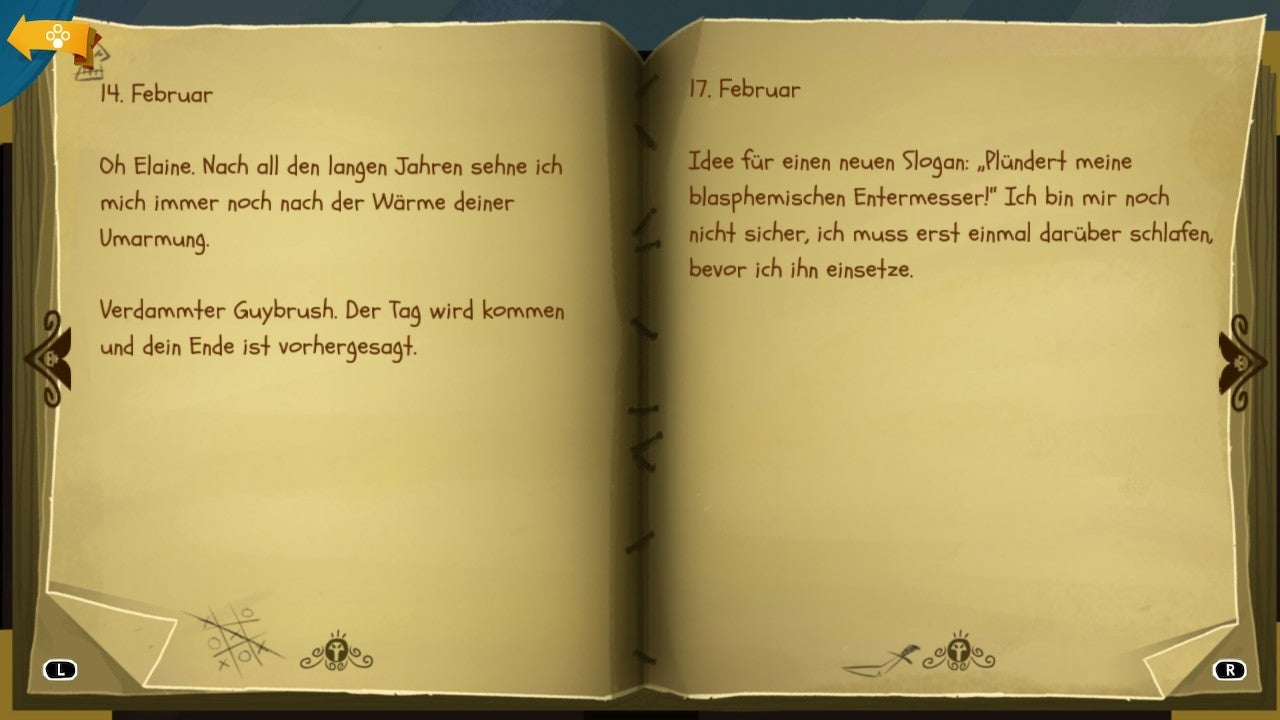 14. Februar
Oh Elaine. Nach all den langen Jahren sehne ich
mich immer noch nach der Wärme deiner
Umarmung.
Verdammter Guybrush. Der Tag wird kommen
und dein Ende ist vorhergesagt.
L
17. Februar
Idee für einen neuen Slogan: „Plündert meine
blasphemischen Entermesser!“ Ich bin mir noch
nicht sicher, ich muss erst einmal darüber schlafen,
bevor ich ihn einsetze.
R